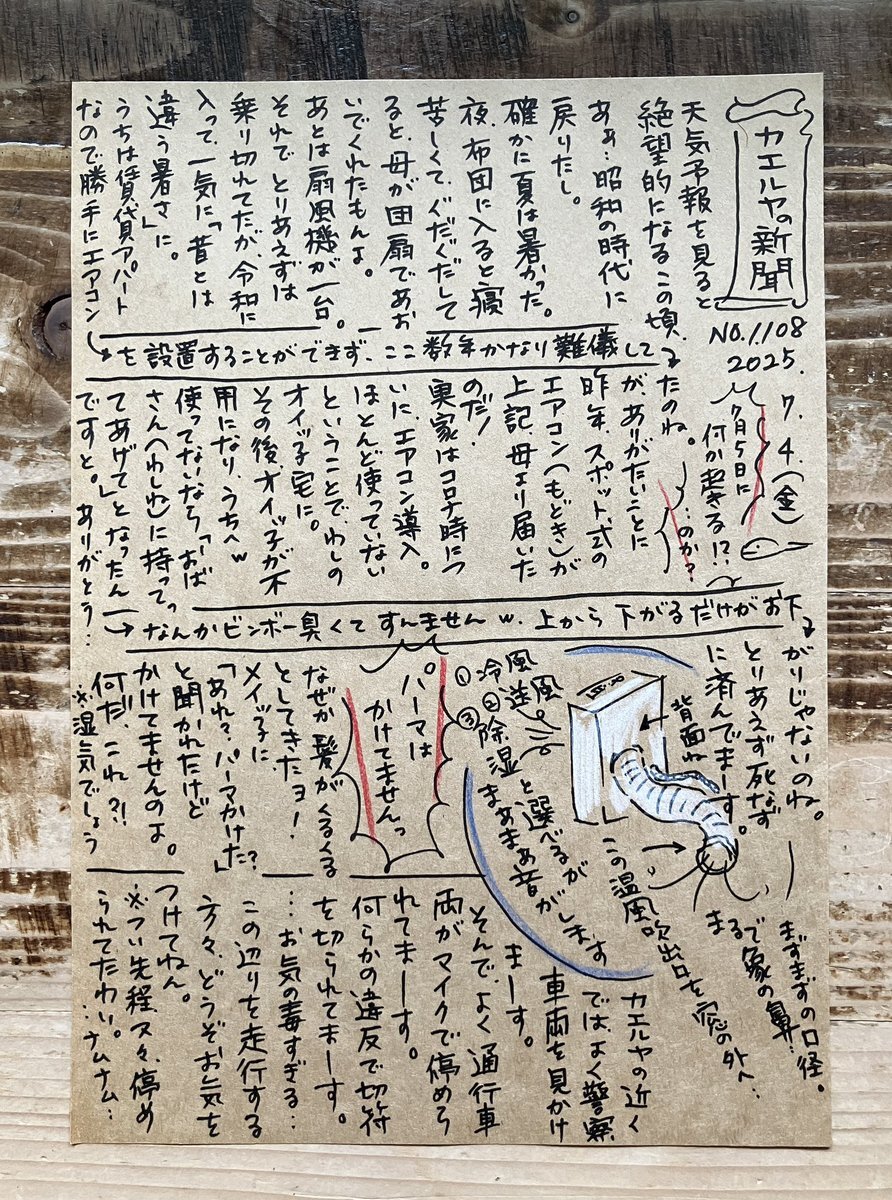 カエルヤの新聞
NO.1108
2025.7.4.(金)
7月5日に
何か起きる!?
…のか?
天気予報を見ると
絶望的になるこの頃。
あぁ…昭和の時代に
戻りたし。
確かに夏は暑かった。
夜、布団に入ると寝
苦しくて、ぐだぐだして
ると、母が団扇であお
いでくれたもんよ。
あとは扇風機が一台。
それで とりあえずは
乗り切れてたが、令和に
入って、一気に「昔とは
違う暑さ」に。
うちは賃貸アパート
なので勝手にエアコン
を設置することができず、ここ数年かなり難儀して
るたのね。
が、ありがたいことに
昨年、スポット式の
エアコン(もどき)が
上記、母より届いた
のだ!
実家はコロナ時につ
いに、エアコン導入。
ほとんど使っていない
ということで、わしの
オイッ子宅に。
その後、オイッ子が不
用になり、うちへw
使ってないなら「おば
さん(わしね)に持ってっ
てあげて」となったん
ですと。ありがとう…
なんかビンボー臭くてすんませんw.上から下がるだけがお下
がりじゃないのね。
とりあえず死なず
に済んでまーす。
背面ね
①冷風
②送風
③除湿
と選べるが
まあまあ音がします
この温風吹出口を窓の外へ…
まるで象の鼻…
まずまずの口径。
パーマは
かけてませんっ
なぜか髪がくるくる
としてきたヨ!
メイッ子に
「あれ?パーマかけた?」
と聞かれたけど
かけてませんのよ。
何だ、これ?!
※湿気でしょう
カエルヤの近く
では、よく警察
車両を見かけ
まーす。
そんで、よく通行車
両がマイクで停めら
れてまーす。
何らかの違反で切符
を切られてまーす。
…お気の毒すぎる…
この辺りを走行する
方々、どうぞお気を
つけてねん。
※つい先程、又々、停め
られてたわい。
…ナムナム…